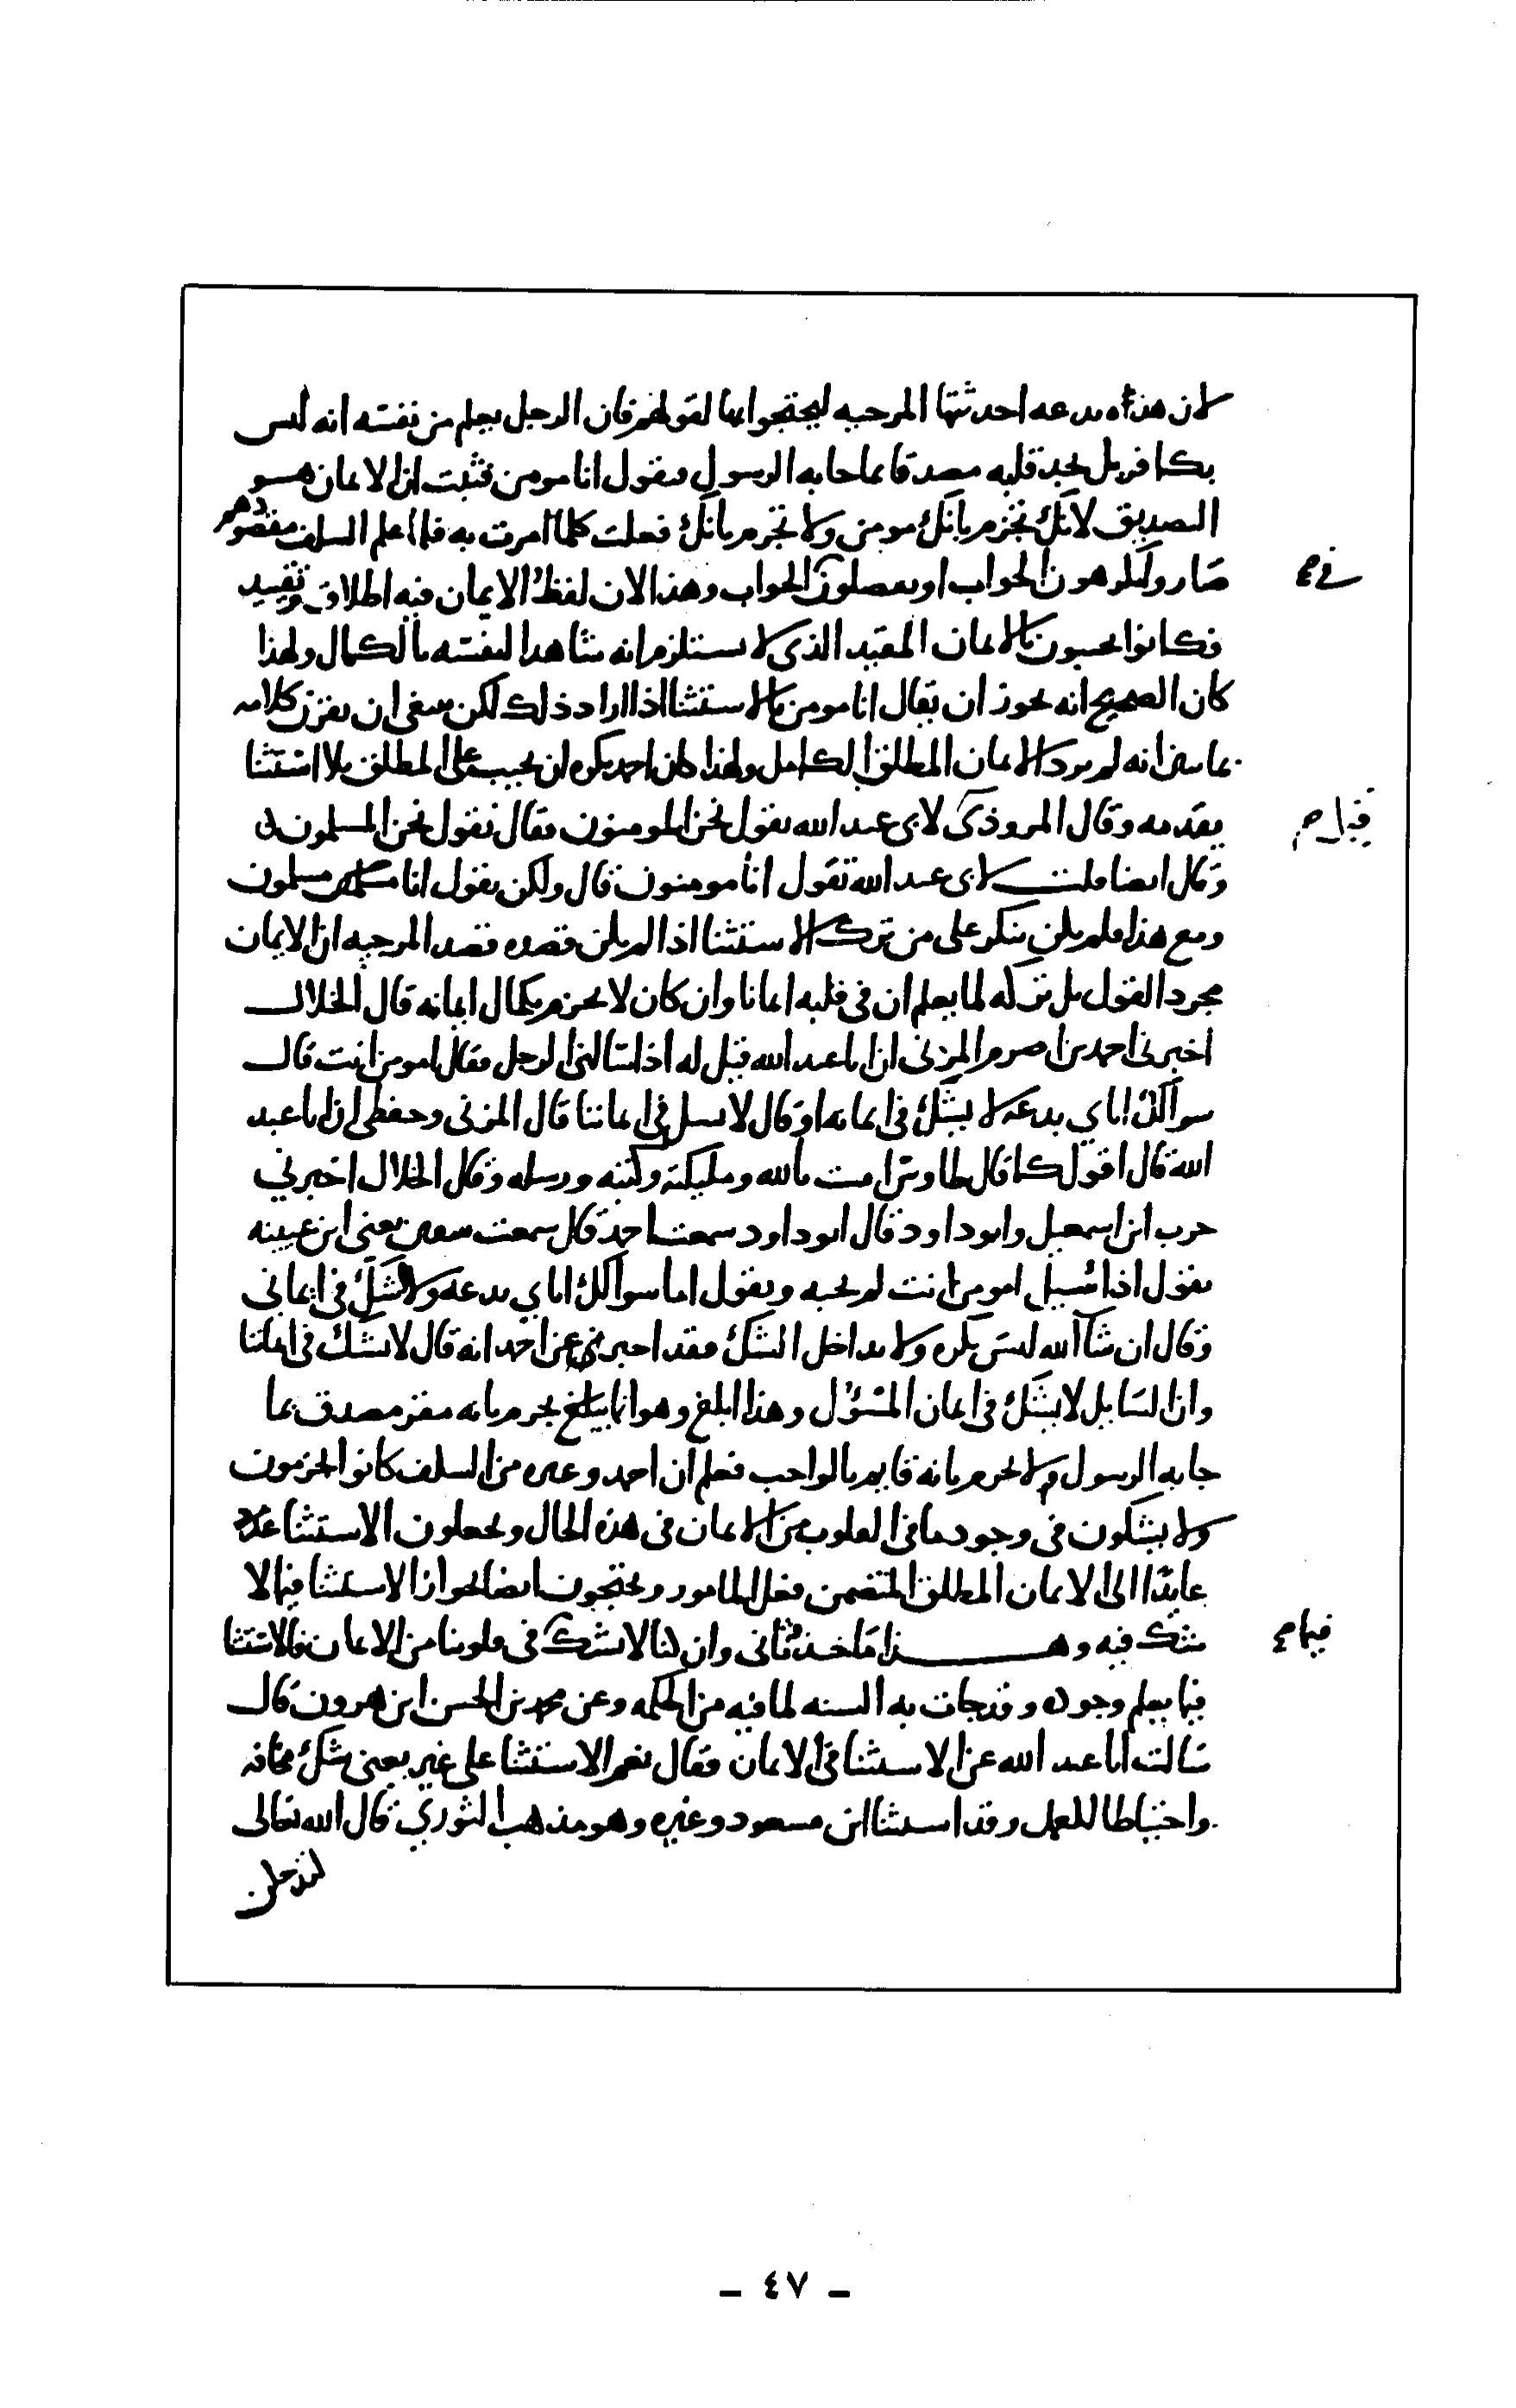 لان هذه بدعه احدثتها المرجيه ليحتجوا بها لقولهم فان الرجل يعلم من نفسه انه ليس
بكافر بل يجد قلبه مصدقا بما جا به الرسول فيقول انا مومن فيثبت ان الايمان هو
التصديق لانك تجزم بانك مومن ولا تجزم بانك فعلت كلما امرت به فلما علم السلف مقصودهم
صاروا يكرهون الجواب او يفصلون الجواب وهذا لان لفظ الايمان فيه اطلاق وتقييد
فكانوا يجيبون بالايمان المقيد الذي لا يستلزم انه شاهد لنفسه بالكمال ولهذا
كان الصحيح انه يجوز ان يقال انا مومن بلا استثنا اذا اراد ذلك لكن ينبغي ان يقرن كلامه
بما يبين انه لم يرد الايمان المطلق الكامل ولهذا كان احمد يكره ان يجيب على المطلق بلا استثنا
يقدمه وقال المروذي لابي عبد الله نقول نحن المومنون فقال نقول نحن المسلمون
وقال ايضا قلت لابي عبد الله نقول انا مومنون قال ولكن نقول انا مسلمون
ومع هذا فلم يكن ينكر على من ترك الاستثنا اذا لم يكن قصده قصد المرجيه ان الايمان
مجرد القول بل تركه لما يعلم ان في قلبه ايمانا وان كان لا يجزم بكمال ايمانه قال الخلال
اخبرني احمد بن اصرم المزني ان ابا عبد الله قيل له اذا سالني الرجل فقال امومن انت قال
سوالك اياي بدعه لا يشك في ايمانه او قال لا نشك في ايماننا قال المزني وحفظي ان ابا عبد
الله قال اقول كما قال طاوس امنت بالله ومليكته وكتبه ورسله وقال الخلال اخبرني
حرب ابن اسمعيل وابو داود قال ابو داود سمعت احمد قال سمعت سفين يعني ابن عيينه
يقول اذا سيل امومن انت لم يجبه ويقول اما سوالك اياي بدعه ولا اشك في ايماني
وقال ان شا الله ليس يكره ولا يداخل الشك فقد اخبرني عن احمد انه قال لا نشك في ايماننا
وان السايل لا يشك في ايمان المسؤل وهذا ابلغ وهو انما يجزم بانه مقر مصدق بما
جا به الرسول ولا يجزم بانه قايم بالواجب فعلم ان احمد وغيره من السلف كانوا يجزمون
ولا يشكون في وجود ما في القلوب من الايمان في هذه الحال ويجعلون الاستثنا
عايدا الى الايمان المطلق المتضمن فعل المامور ويحتجون ايضا بجواز الاستثنا فيما لا
شك فيه وهذا ماخذ ثاني وان كنا لا نشك في قلوبنا من الايمان فالاستثنا
فيما يعلم وجوده وقد جات به السنه لما فيه من الحكمه وعن محمد بن الحسن ابن هرون قال
سالت ابا عبد الله عن الاستثنا في الايمان فقال نعم الاستثنا على غير معنى شك مخافه
واحتياطا للعمل وقد استثنا ابن مسعود وغيره وهو مذهب الثوري قال الله تعالى
لتدخلن
- ٤٧ -